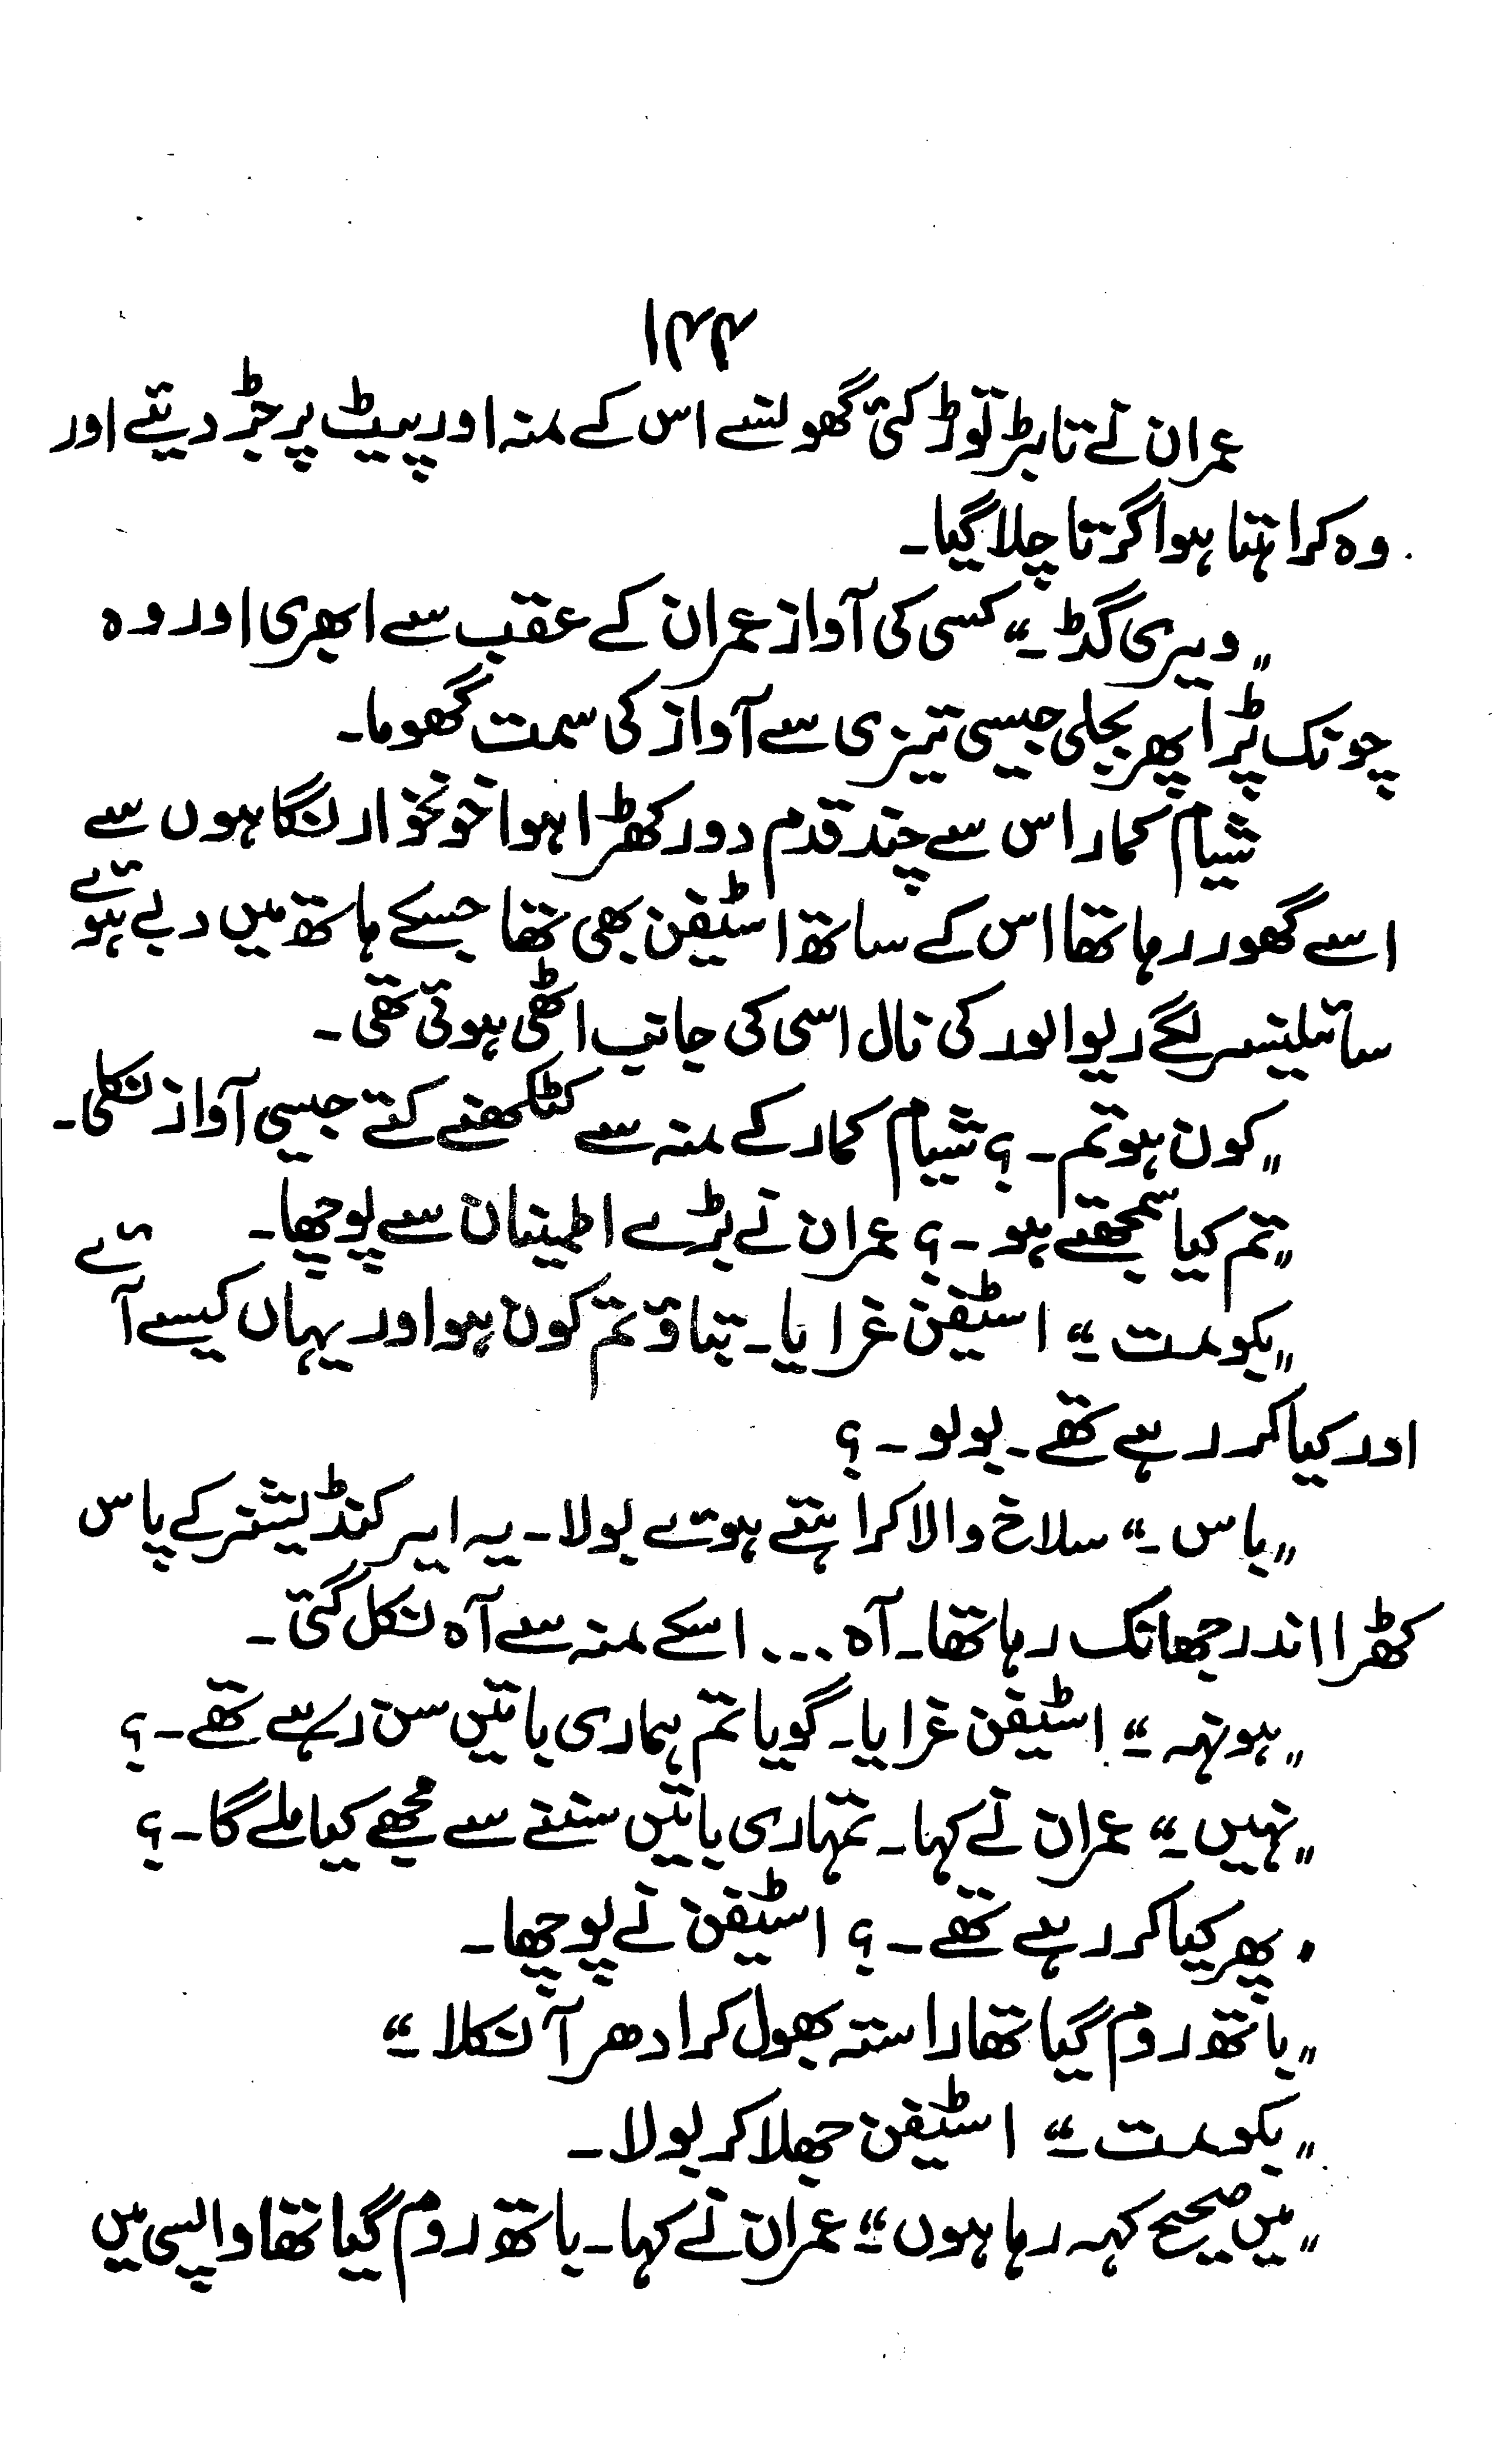 ۱۴۴
عمران نے تابڑ توڑ کئی گھونسے اس کے منہ اور پیٹ پر جڑ دیئے اور
وہ کراہتا ہوا گرتا چلا گیا۔
”ویری گڈ۔“ کسی کی آواز عمران کے عقب سے ابھری اور وہ
چونک پڑا پھر بجلی جیسی تیزی سے آواز کی سمت گھوما۔
شیام کمار اس سے چند قدم دور کھڑا ہوا خونخوار نگاہوں سے
اسے گھور رہا تھا اس کے ساتھ اسٹیفن بھی تھا جسکے ہاتھ میں دبے ہوئے
سائیلینسر لگے ریوالور کی نال اسی کی جانب اٹھی ہوئی تھی۔
”کون ہو تم۔؟ شیام کمار کے منہ سے کٹکھنے کتے جیسی آواز نکلی۔
”تم کیا سمجھتے ہو۔؟ عمران نے بڑے اطمینان سے پوچھا۔
”بکو مت۔“ اسٹیفن غرایا۔ بتاؤ تم کون ہو اور یہاں کیسے آئے
اور کیا کر رہے تھے۔ بولو۔؟
”باس۔“ سلاخ والا کراہتے ہوئے بولا۔ یہ ایر کنڈیشنر کے پاس
کھڑا اندر جھانک رہا تھا۔ آہ ... اسکے منہ سے آہ نکل گئی۔
”ہونہہ۔“ اسٹیفن غرایا۔ گویا تم ہماری باتیں سن رہے تھے۔؟
”نہیں۔“ عمران نے کہا۔ تمہاری باتیں سننے سے مجھے کیا ملے گا۔؟
”پھر کیا کر رہے تھے۔؟ اسٹیفن نے پوچھا۔
”باتھ روم گیا تھا راستہ بھول کر ادھر آ نکلا۔“
”بکو مت۔“ اسٹیفن جھلا کر بولا۔
”میں صحیح کہہ رہا ہوں۔“ عمران نے کہا۔ باتھ روم گیا تھا واپسی میں